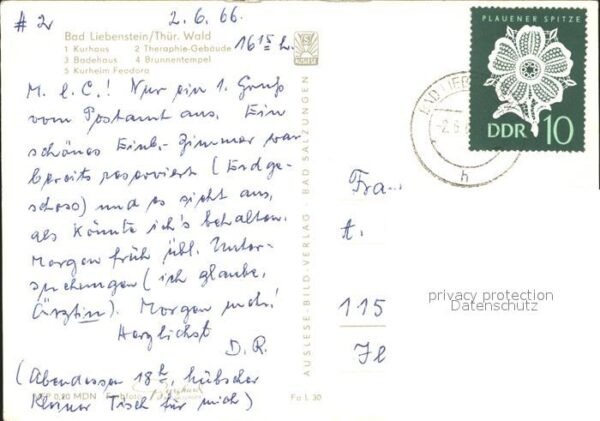 # 2 2.6.66.
Bad Liebenstein/Thür. Wald
1 Kurhaus 2 Theraphie-Gebäude
16 15 h.
3 Badehaus 4 Brunnentempel
5 Kurheim Feodora
M. l. C.! Nur ein 1. Gruß
vom Postamt aus. Ein
schönes Einb.-Zimmer war
bereits reserviert (Erdge-
schoss) und es sieht aus,
als könnte ich's behalten.
Morgen früh übl. Unter-
suchungen (ich glaube,
Ärztin). Morgen mehr!
Herzlichst
D. R.
(Abendessen 18 h, hübscher
kleiner Tisch für mich)
0,20 MDN
Fo L 30
AUSLESE-BILD-VERLAG BAD SALZUNGEN
PLAUENER SPITZE
DDR 10
BAD LIE
h
Fra
A.
115
privacy protection
Datenschutz